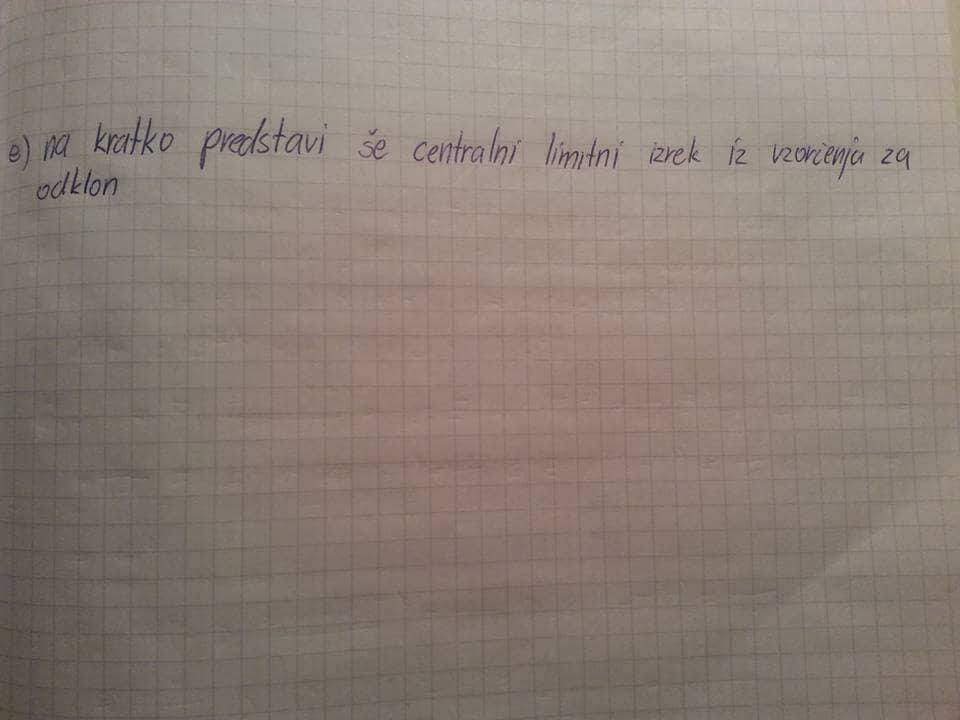 e) na kratko predstavi še centralni limitni izrek iz vzorčenja za
odklon